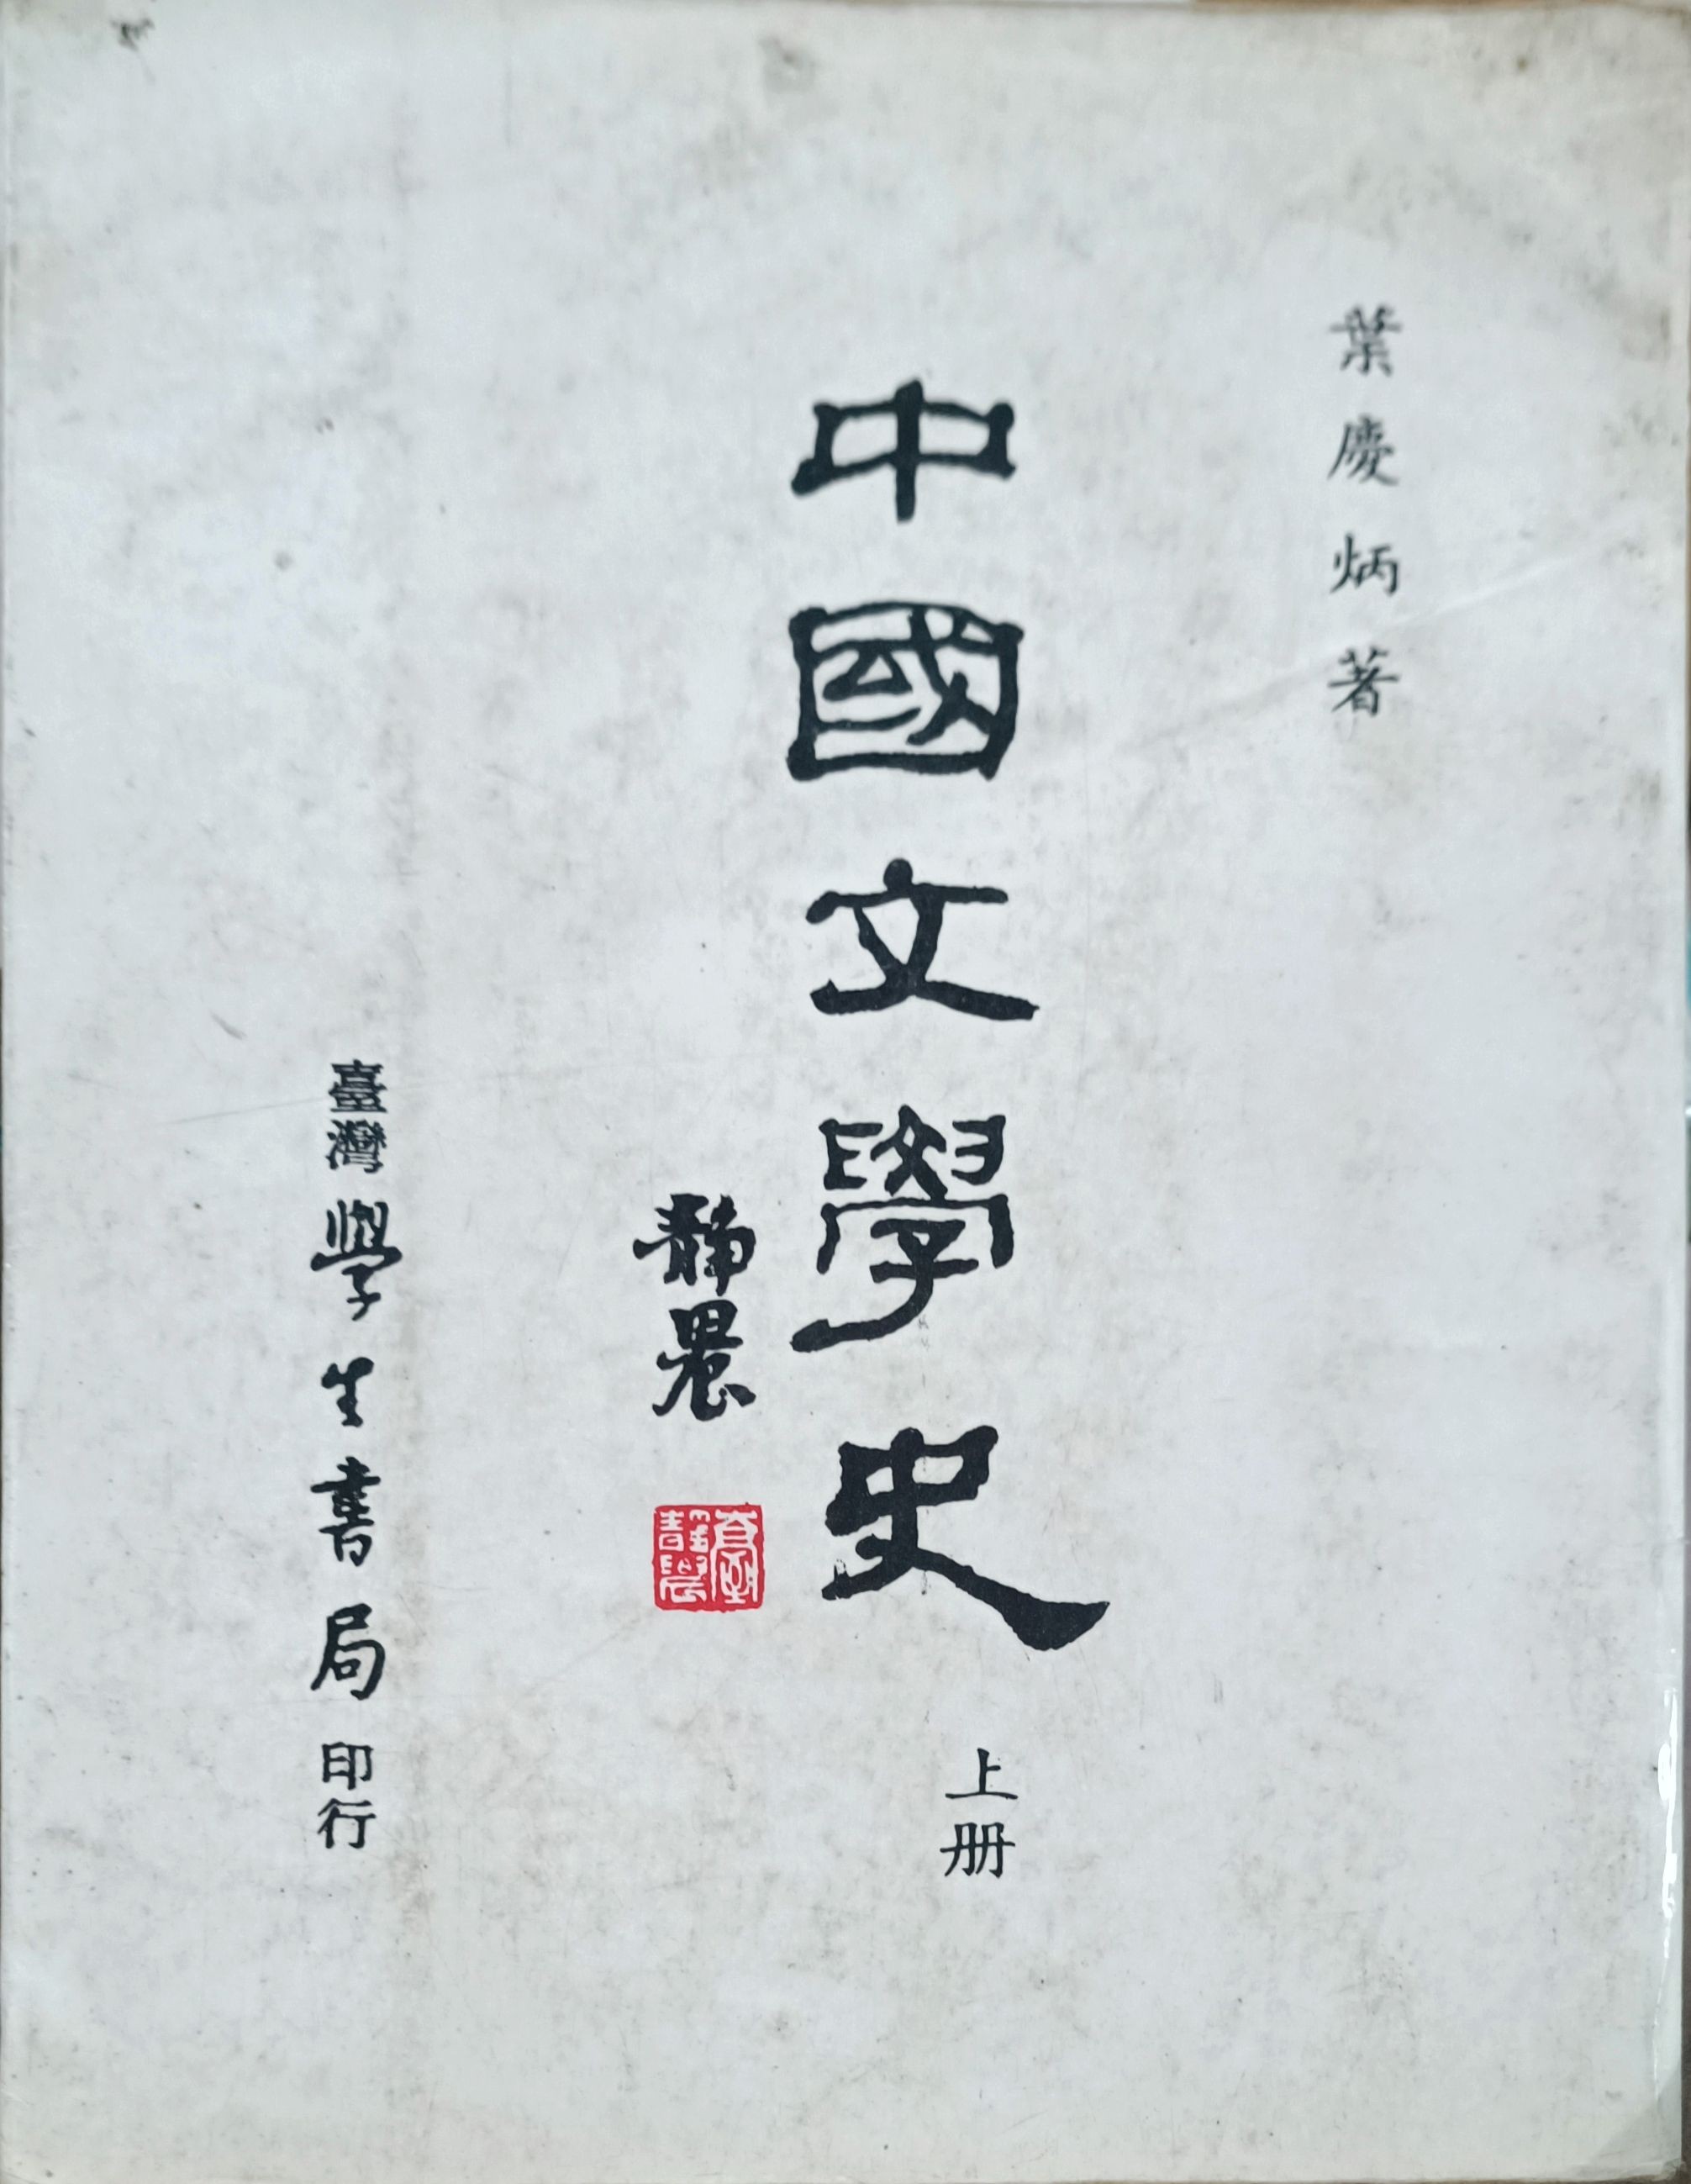 葉慶炳著
中國文學史
上册
靜農
臺靜農
臺灣學生書局印行